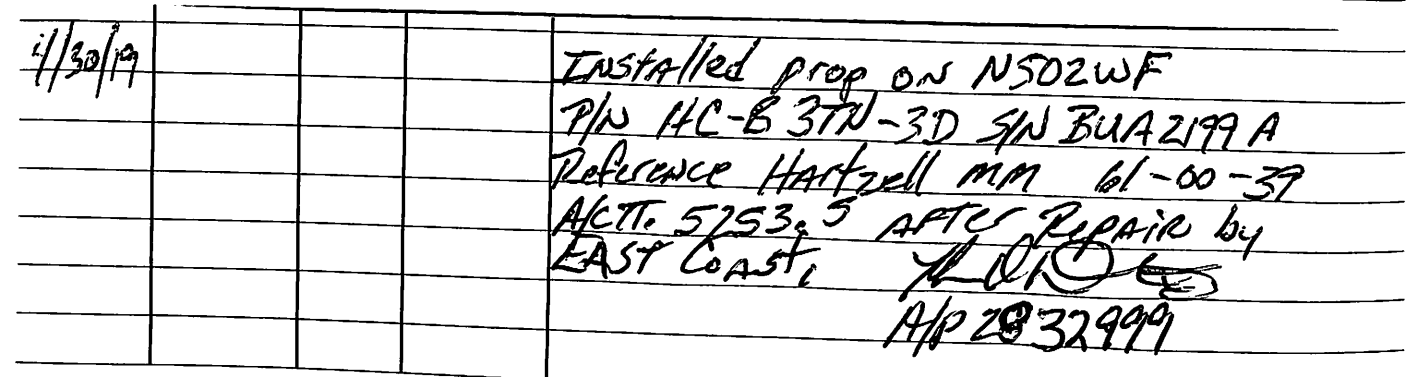 11/30/19
Installed prop on N502WF
P/N HC-B3TN-3D S/N BUA2199A
Reference Hartzell MM 61-00-39
A/CTT. 5253.5 After Repair by
EAST COAST,
A/P 2832999